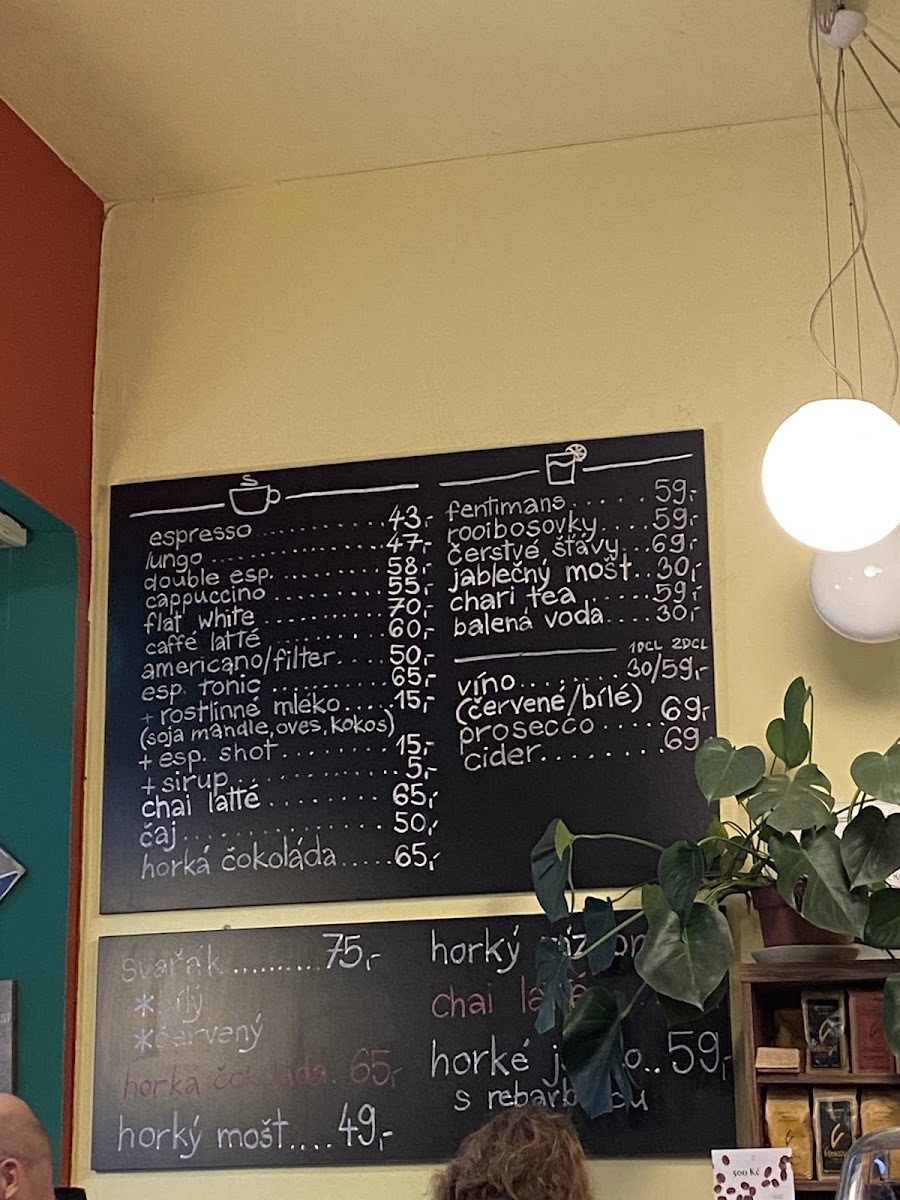 espresso 43,-
lungo 47,-
double esp. 58,-
cappuccino 55,-
flat white 70,-
caffé latté 60,-
americano/filter 50,-
esp. tonic 65,-
+ rostlinné mléko 15,-
(soja mandle, oves, kokos)
+ esp. shot 15,-
+ sirup 5,-
chai latté 65,-
čaj 50,-
horká čokoláda 65,-
fentimans 59,-
rooibosovky 59,-
čerstvé šťávy 69,-
jablečný mošt 30,-
chari tea 59,-
balená voda 30,-
1DCL 2DCL
víno 30/59,-
(červené/bílé)
prosecco 69,-
cider 69
svařák 75,-
*
*červený
horká čokoláda 65,-
horký mošt 49,-
horký
chai latté
horké 59,-
s
500 Kč